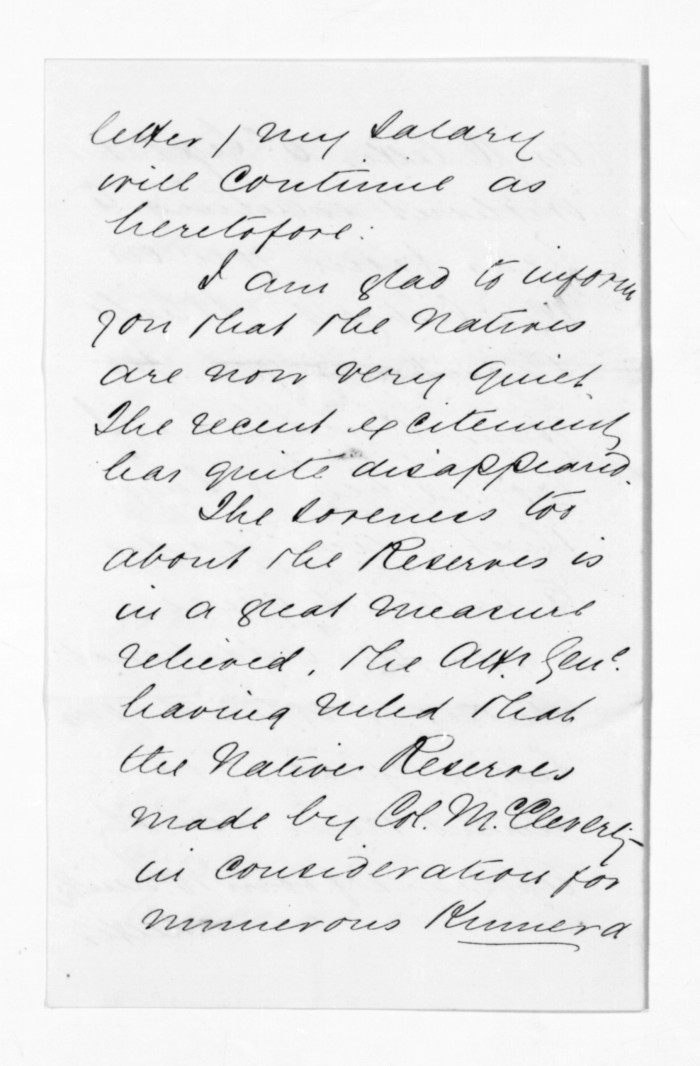 letter / my salary
will continue as
heretofore:
I am glad to inform
you that the Natives
are now very quiet
The recent excitement
has quite disappeared.
The soreness too
about the Reserves is
in a great measure
relieved, the Atty Genl.
having ruled that
the Native Reserves
made by Col. McCleverty
in consideration for
numerous Kumera